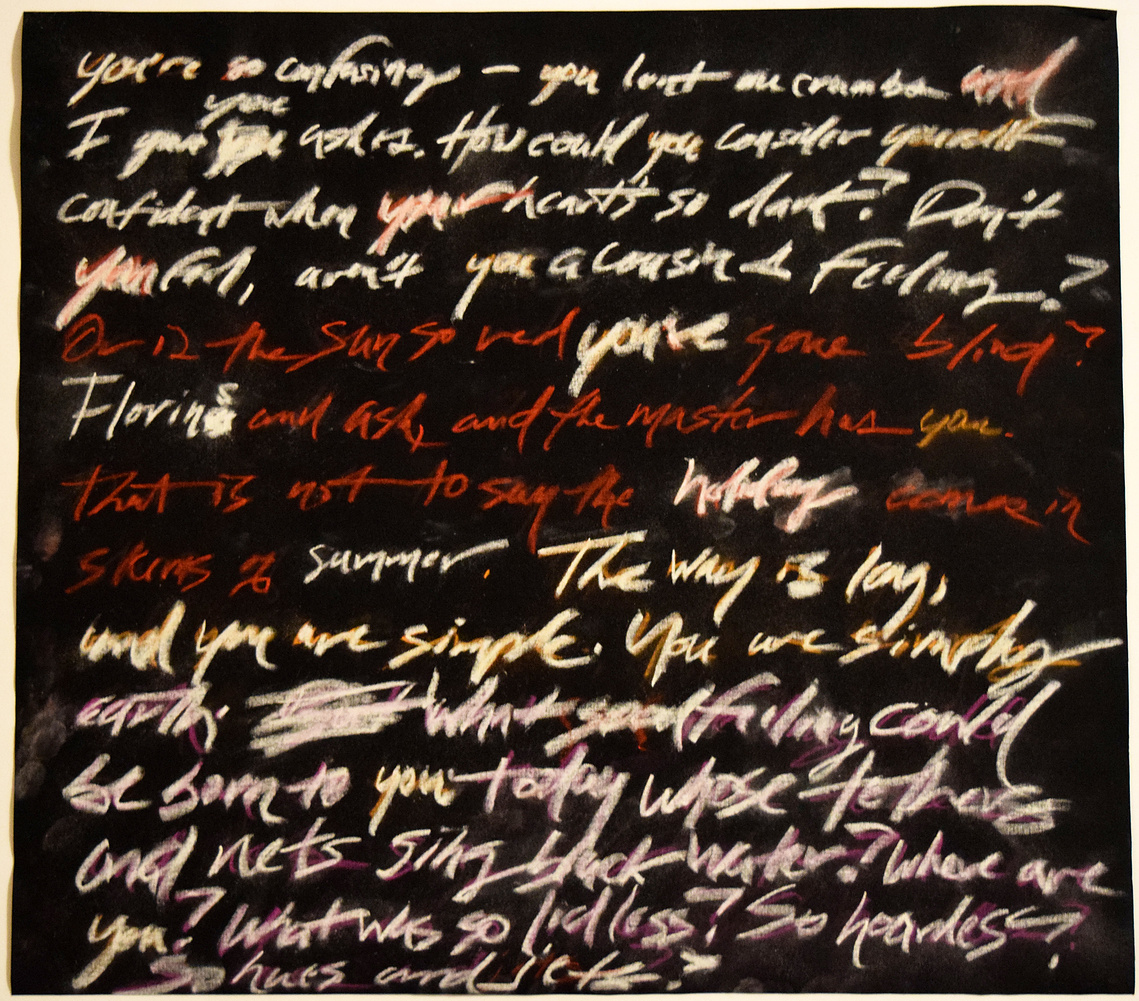 you're so confusing – you lent me crumbs and
I gave you ashes. How could you consider yourself
confident when your heart's so dark? Don't
you feel, aren't you a cousin of Feeling?
Or is the sun so red you've gone blind?
Florins and ash, and the master has you.
That is not to say the holiday comes in
skins of summer. The way is long,
and you are simple. You are simply
earth. What good feeling could
be born to you today whose tethers
and nets sing black water? Where are
you? What was so lidless? So
So hues and jets?